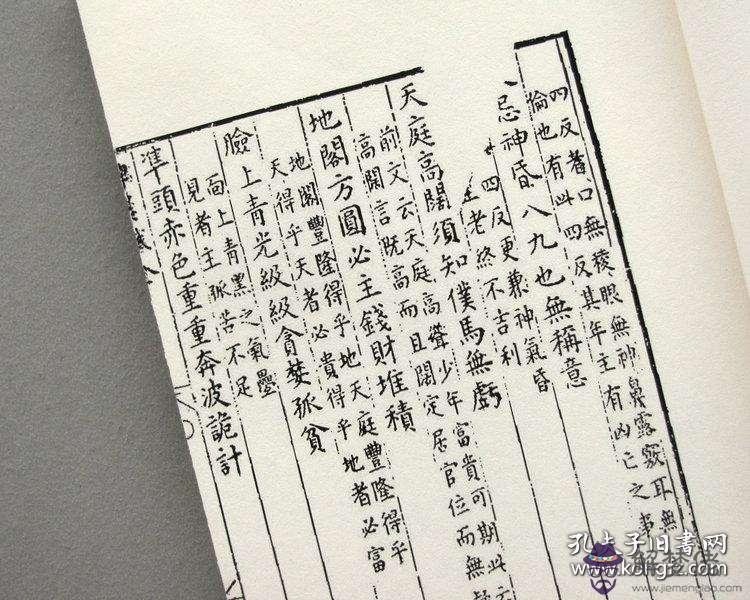 四反者口無稜眼無神鼻露竅耳無
倫也有此四反其年主有凶亡之事
忌神昏八九也無稱意
四反更兼神氣昏
老終不吉利
天庭高闊須知僕馬無虧
前文云天庭高聳少年富貴可期此云
高闊言既高而且闊定居官位而無疑
地閣方圓必主錢財堆積
地閣豐隆得乎地天庭豐隆得乎
天得乎天者必貴得乎地者必富
臉上青光級級貪婪孤貧
面上青黑之氣疊
見者主孤苦不足
準頭赤色重重奔波詭計
孔夫子旧书网